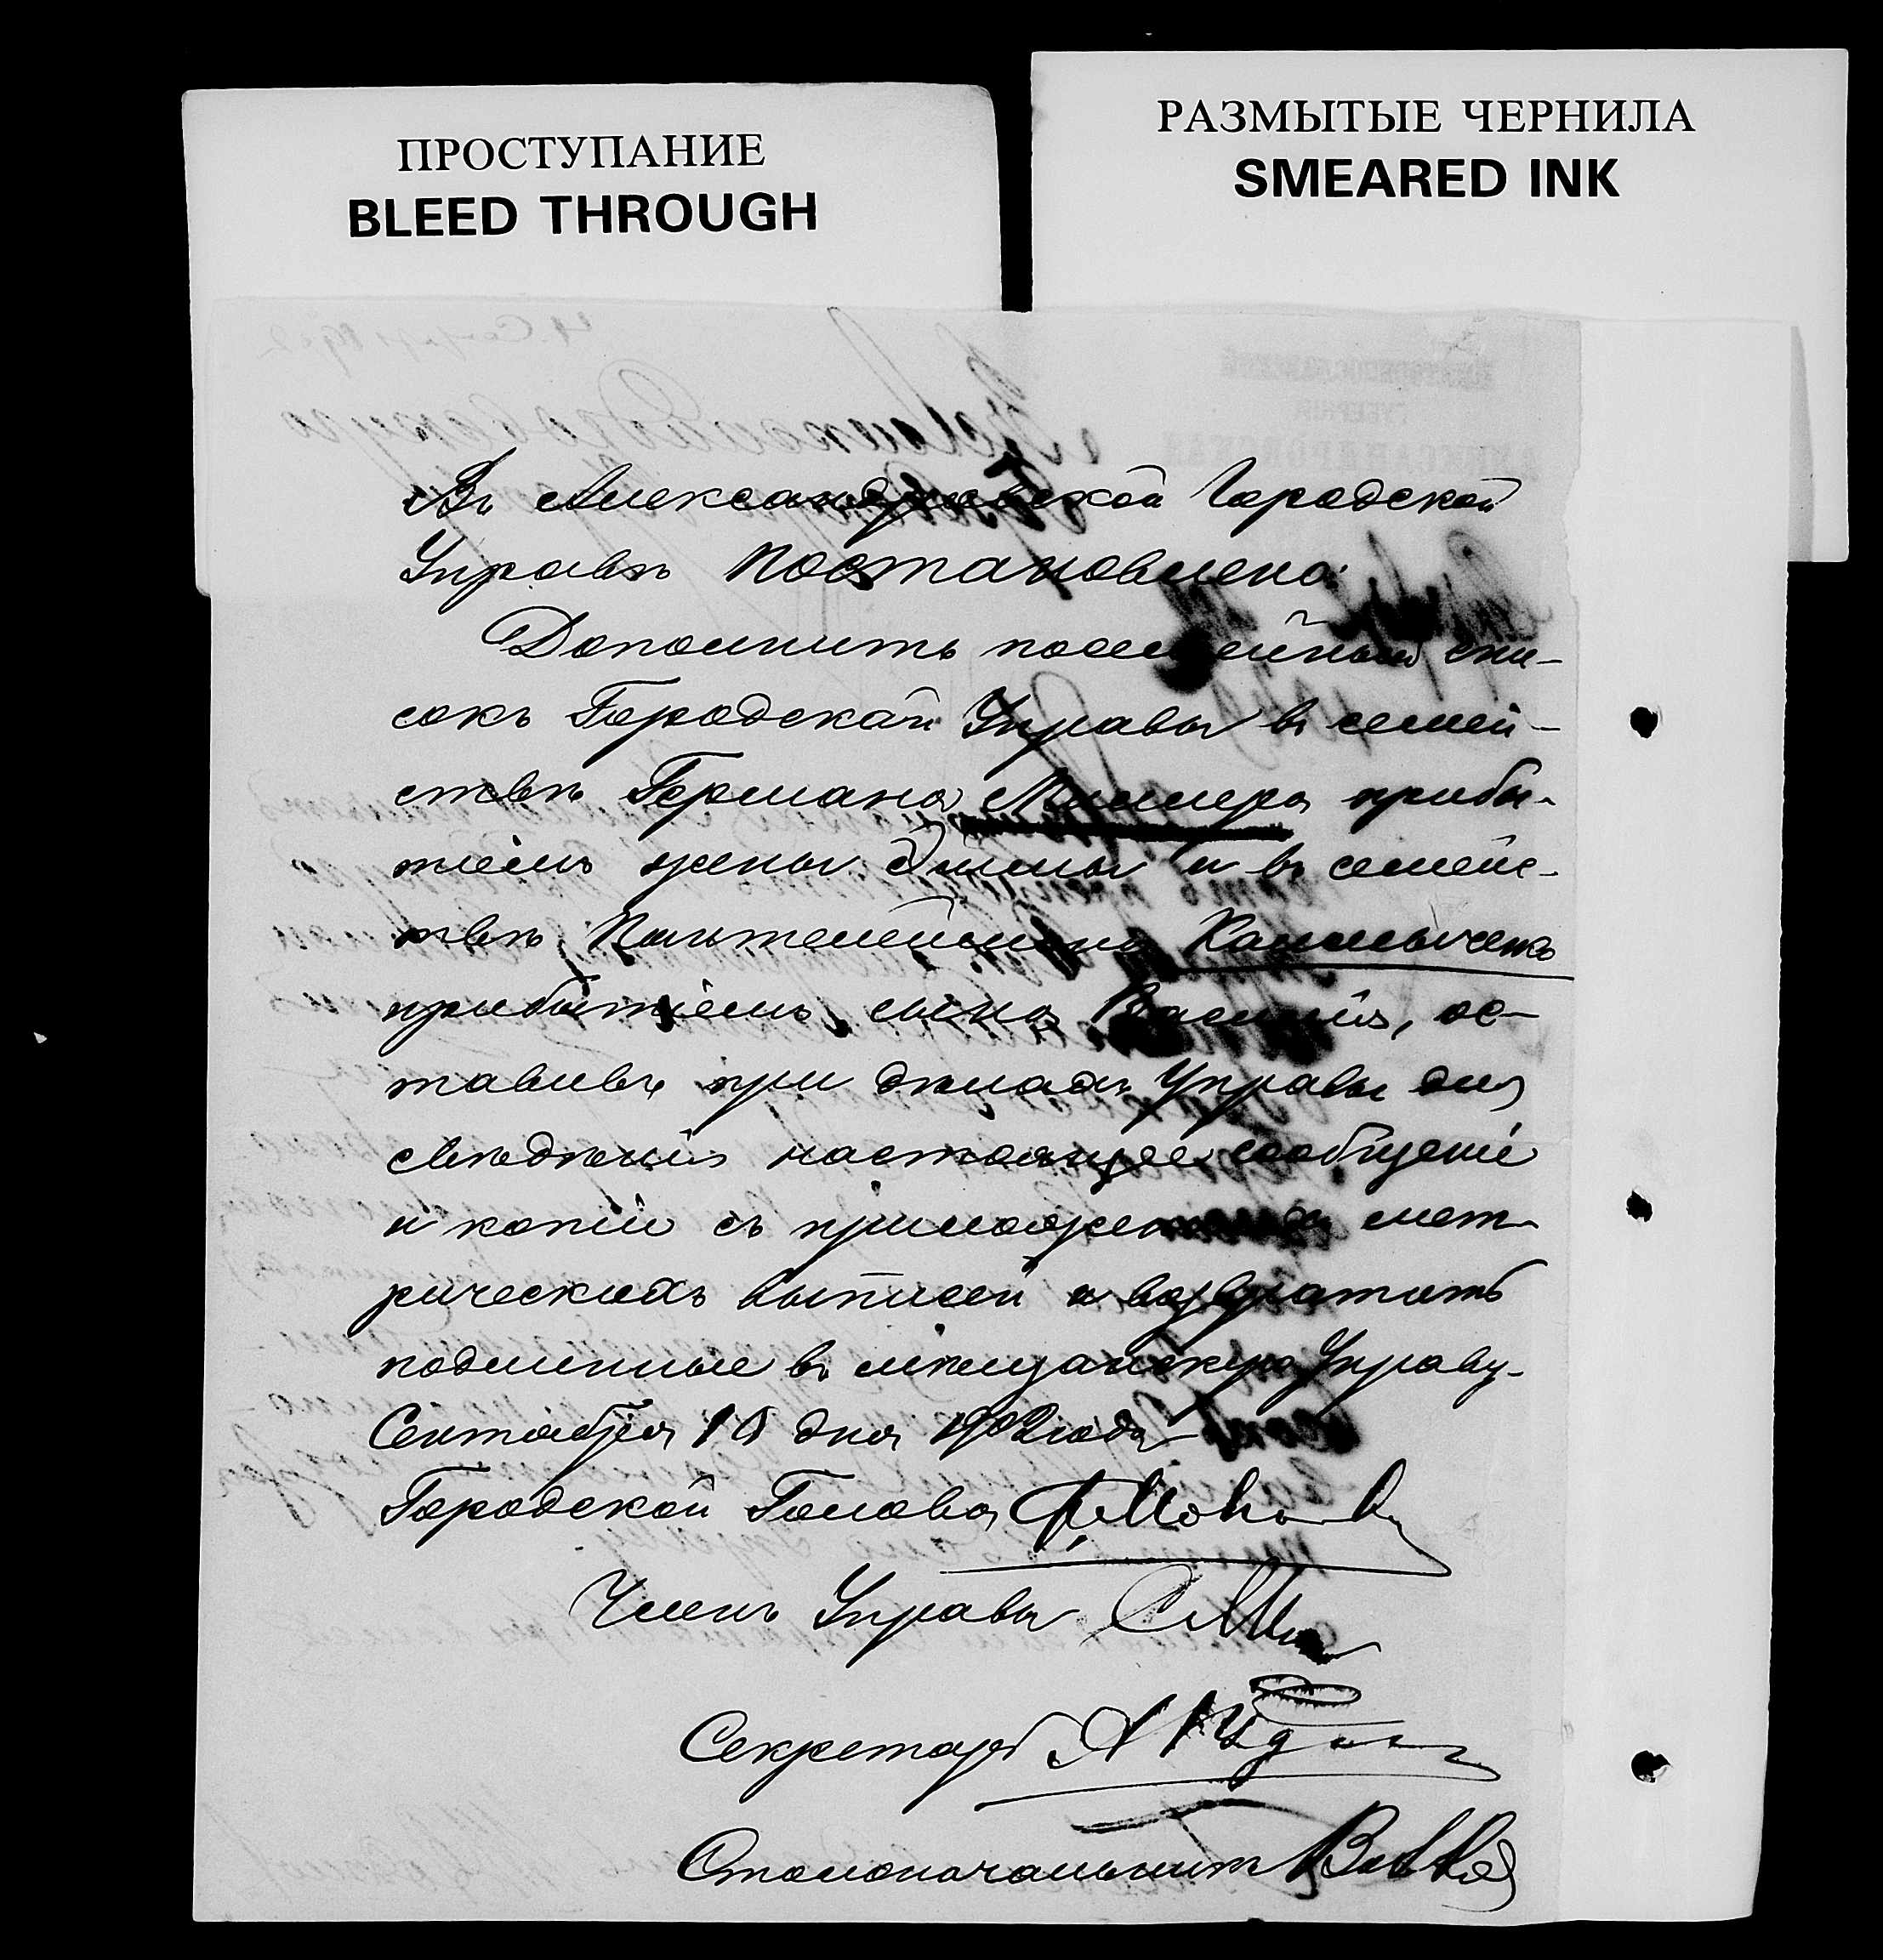 ПРОСТУПАНИЕ
BLEED THROUGH
РАЗМЫТЫЕ ЧЕРНИЛА
SMEARED INK
Въ Александровской Городской
Управѣ постановлено:
Дополнить посемейный спи-
сокъ Городской Управы въ семей-
ствѣ Германа Миллера прибы-
тіемъ жены Эммы и въ семейс-
твѣ Пантелеймона Калмычекъ
прибытіемъ сына Василія, ос-
тавивъ при дѣлахъ Управы для
свѣдѣнія настоящее сообщеніе
и копіи съ приложенныхъ мет-
рическихъ выписей и возвратить
подлинные въ мѣщанскую Управу.
Сентября 10 дня 1902 года
Городской Голова
Членъ Управы
Секретарь
Столоначальникъ